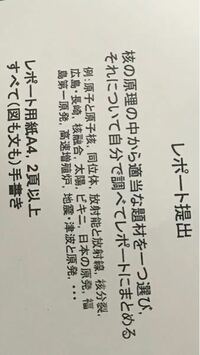 レポート提出
核の原理の中から適当な題材を一つ選び,
それについて自分で調べてレポートにまとめる
例：原子と原子核, 同位体, 放射能と放射線, 核分裂,
広島・長崎, 核融合, 太陽, ビキニ, 日本の原発, 福
島第一原発, 高速増殖炉, 地震・津波と原発, ・・・
レポート用紙A4, 2頁以上
すべて(図も文も)手書き